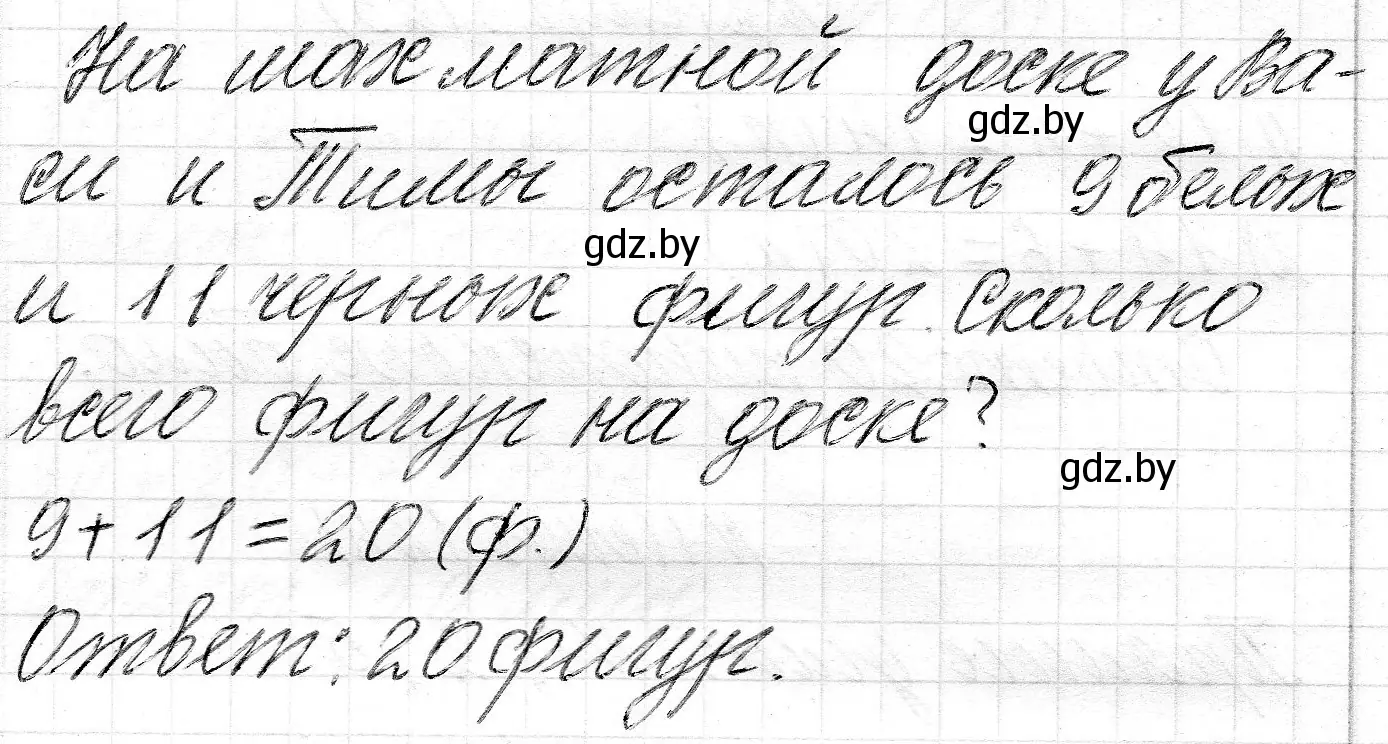 На шахматной доске у Ва-
gdz.by
си и Тимы осталось 9 белых
gdz.by
и 11 черных фигур. Сколько
всего фигур на доске?
gdz.by
9 + 11 = 20 (ф.)
Ответ: 20 фигур.